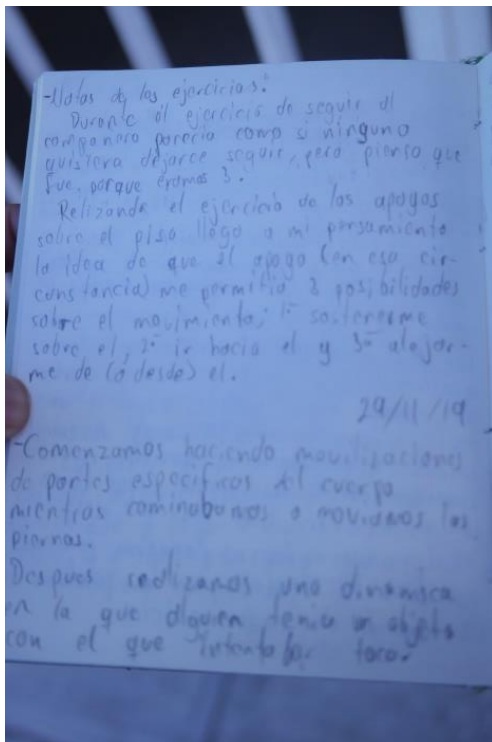 -Notas de los ejercicios:
Durante el ejercicio de seguir al
compañero parecía como si ninguno
quisiera dejarce seguir, pero pienso que
fue porque éramos 3.
Relizando el ejercicio de los apoyos
sobre el piso llego a mi pensamiento
la idea de que el apoyo (en esa cir-
constancia) me permitía 3 posibilidades
sobre el movimiento; 1- sostenerme
sobre el, 2- ir hacia el y 3- alejar-
me de (o desde) el.
29/11/19
-Comenzamos haciendo movilizaciones
de partes especificas del cuerpo
mientras caminabamos o moviamos las
piernas.
Despues realizamos una dinamica
en la que alguien tenia un objeto
con el que intentaba tocar